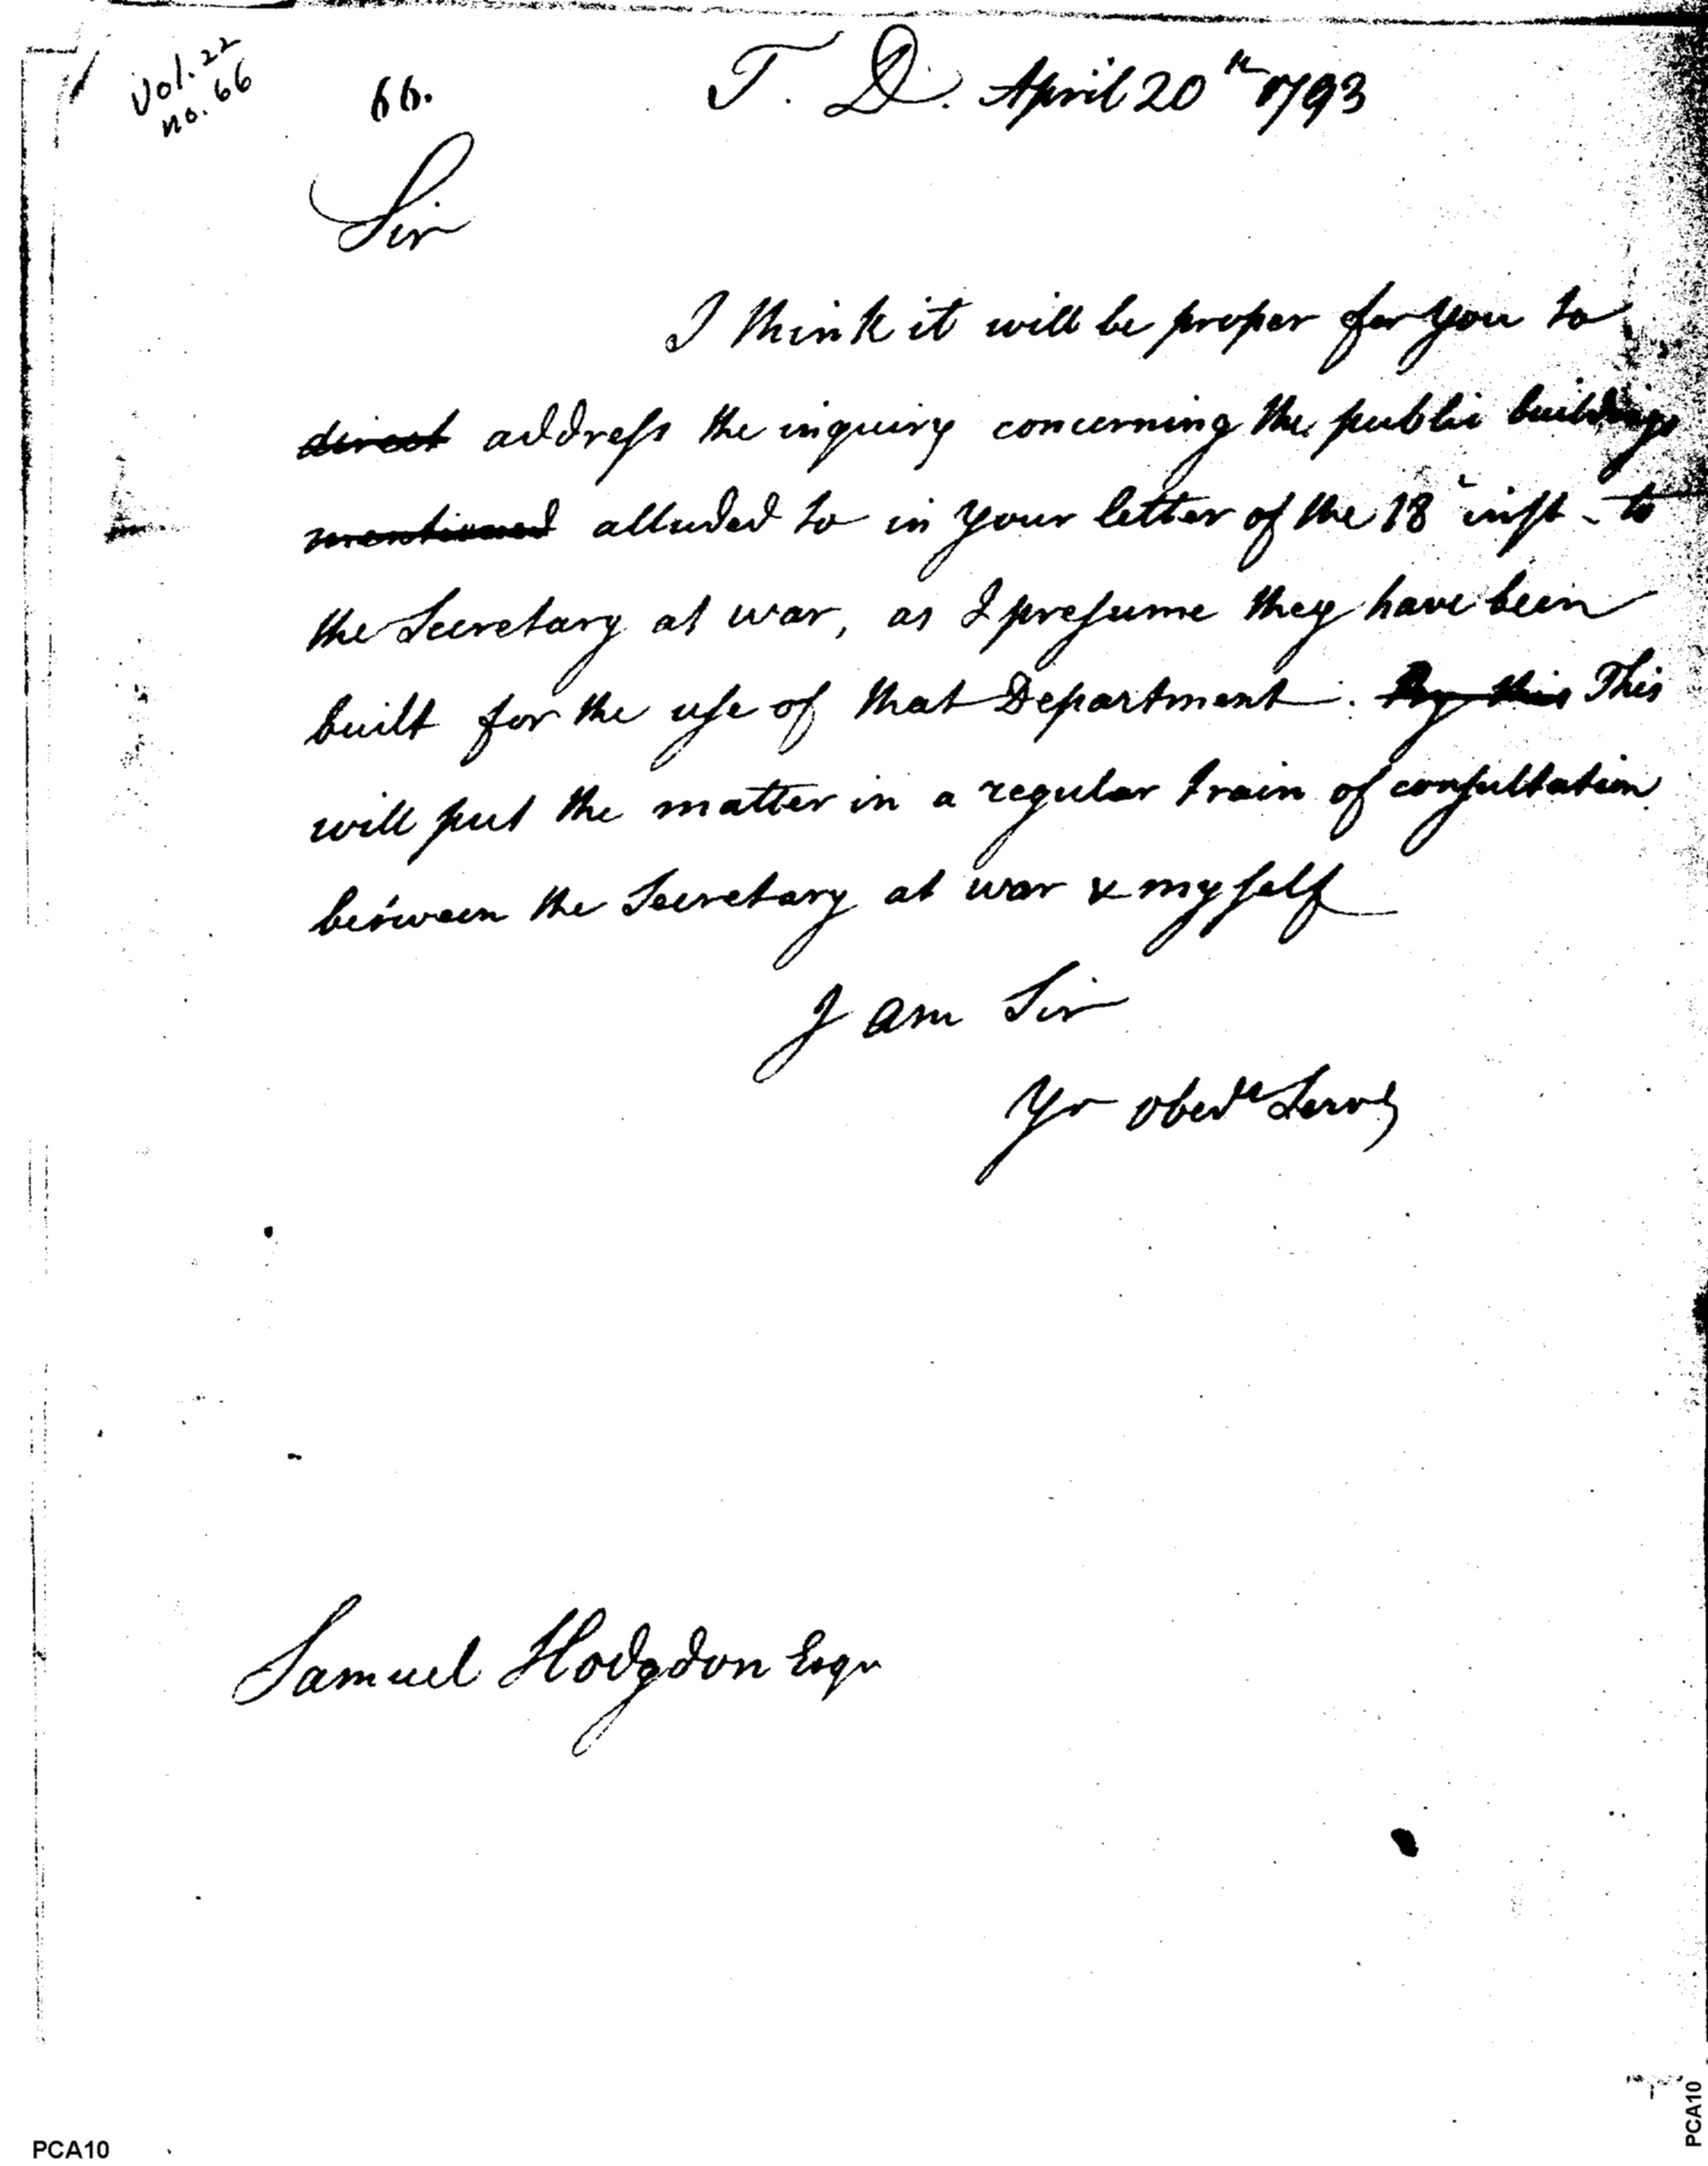 Vol. 22
no. 66
66.
T. D. April 20th 1793
Sir
I think it will be proper for you to
direct address the inquiry concerning the public buildings
mentioned alluded to in your letter of the 18 inst - to
the Secretary at war, as I presume they have been
built for the use of that Department. By this This
will put the matter in a regular train of consultation
between the Secretary at war & myself
I am Sir
Yr obedt Servt
Samuel Hodgdon Esqr
PCA10
PCA10